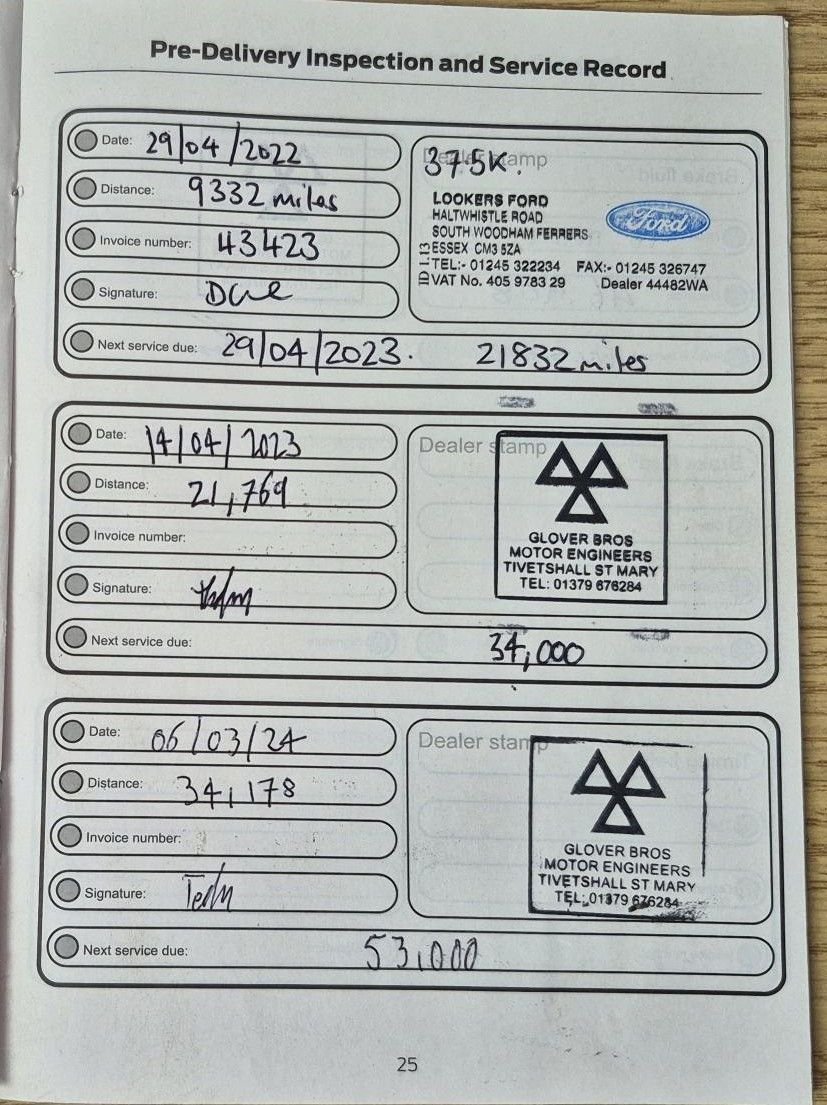 Pre-Delivery Inspection and Service Record
Date: 29/04/2022
Distance: 9332 miles
Invoice number: 43423
Signature:
Next service due: 29/04/2023. 21832 miles
Dealer stamp
37.5K.
LOOKERS FORD
HALTWHISTLE ROAD
SOUTH WOODHAM FERRERS
ESSEX CM3 5ZA
TEL:- 01245 322234 FAX:- 01245 326747
VAT No. 405 9783 29 Dealer 44482WA
Ford
Date: 14/04/2023
Distance: 21,769
Invoice number:
Signature:
Next service due: 34,000
Dealer stamp
GLOVER BROS
MOTOR ENGINEERS
TIVETSHALL ST MARY
TEL: 01379 676284
Date: 06/03/24
Distance: 34,178
Invoice number:
Signature:
Next service due: 53,000
Dealer stamp
GLOVER BROS
MOTOR ENGINEERS
TIVETSHALL ST MARY
TEL: 01379 676284
25